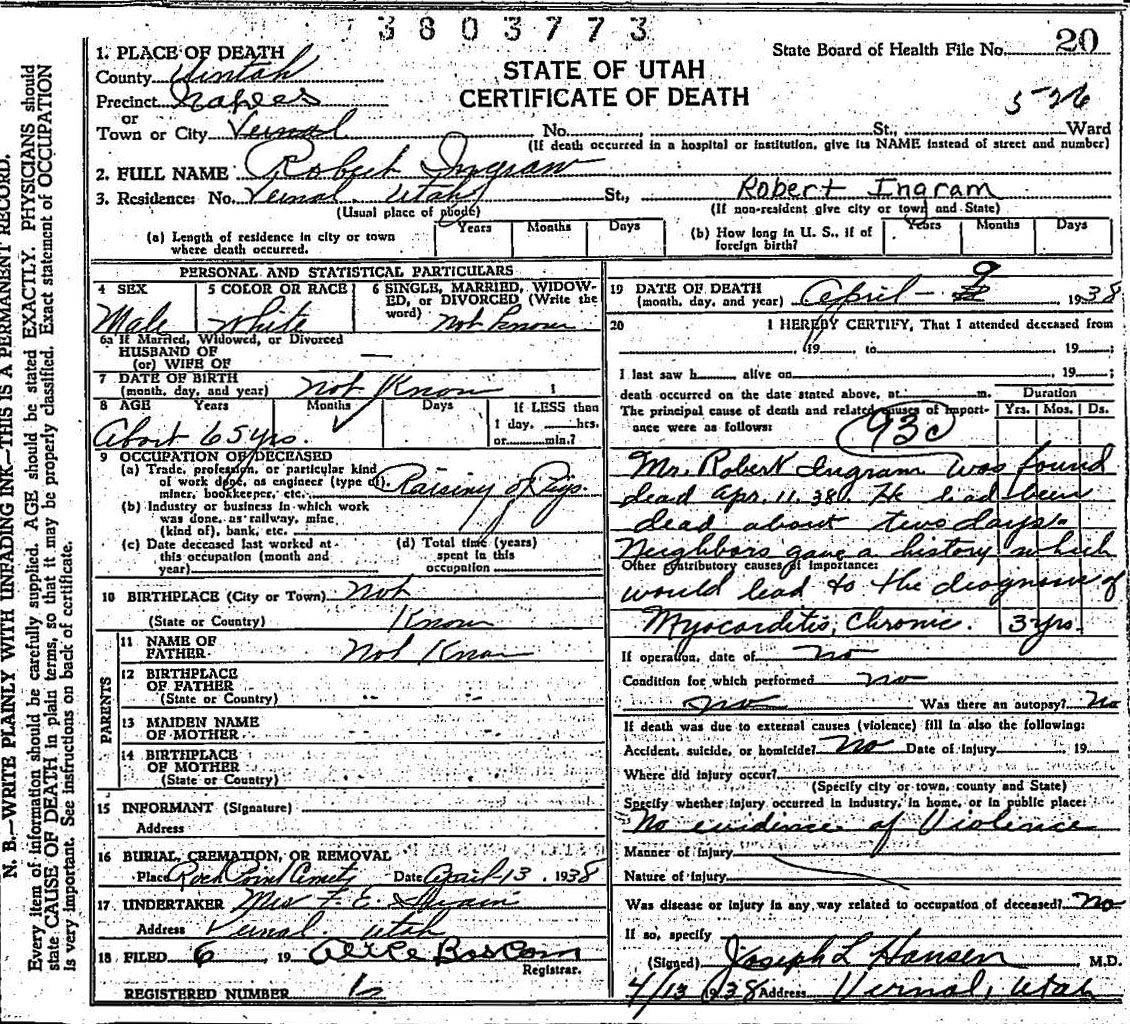 3803773
State Board of Health File No. 20
1. PLACE OF DEATH
County Uintah
STATE OF UTAH
CERTIFICATE OF DEATH
526
Precinct Naples
or
Town or City Vernal No. St., Ward
(If death occurred in a hospital or institution, give its NAME instead of street and number)
2. FULL NAME Robert Ingram
3. Residence: No. Vernal. Utah St., Robert Ingram
(Usual place of abode) (If non-resident give city or town and State)
(a) Length of residence in city or town where death occurred. Years Months Days
(b) How long in U. S., if of foreign birth? Years Months Days
PERSONAL AND STATISTICAL PARTICULARS
4 SEX 5 COLOR OR RACE 6 SINGLE, MARRIED, WIDOWED, or DIVORCED (Write the word)
Male White Not Know
6a If Married, Widowed, or Divorced
HUSBAND OF
(or) WIFE OF —
7 DATE OF BIRTH
(month, day, and year) Not Know 1
8 AGE Years Months Days If LESS than
1 day, hrs.
or min.?
About 65 yrs.
9 OCCUPATION OF DECEASED
(a) Trade, profession, or particular kind
of work done, as engineer (type of),
miner, bookkeeper, etc. Raising of Pigs.
(b) Industry or business in which work
was done, as railway, mine
(kind of), bank, etc.
(c) Date deceased last worked at
this occupation (month and
year)
(d) Total time (years)
spent in this
occupation
10 BIRTHPLACE (City or Town) Not
(State or Country) Know
PARENTS
11 NAME OF
FATHER Not Know
12 BIRTHPLACE
OF FATHER
(State or Country)
13 MAIDEN NAME
OF MOTHER
14 BIRTHPLACE
OF MOTHER
(State or Country)
15 INFORMANT (Signature)
Address
16 BURIAL, CREMATION, OR REMOVAL
Place Rock Point Cemety Date April 13, 1938
17 UNDERTAKER Mrs F. E.
Address Vernal. Utah
18 FILED 6 19 Alice
Registrar.
REGISTERED NUMBER
19 DATE OF DEATH
(month, day, and year) April - 9 1938
20 I HEREBY CERTIFY, That I attended deceased from
19 to 19 ;
I last saw h alive on 19 ;
death occurred on the date stated above, at m.
The principal cause of death and related causes of importance were as follows:
Duration
Yrs. Mos. Ds.
93c
Mr. Robert Ingram was found
dead Apr. 11. 38. He had been
dead about two days.
Neighbors gave a history which
Other contributory causes of importance:
would lead to the diagnosis of
Myocarditis, Chronic. 3 yrs.
If operation, date of no
Condition for which performed no
no Was there an autopsy? No
If death was due to external causes (violence) fill in also the following:
Accident, suicide, or homicide? No Date of injury 19
Where did injury occur?
(Specify city or town, county and State)
Specify whether injury occurred in industry, in home, or in public place:
No evidence of Violence
Manner of injury
Nature of injury
Was disease or injury in any way related to occupation of deceased? No
If so, specify
(Signed) Joseph L Hansen M.D.
4/13 1938 Address Vernal, Utah
N. B.—WRITE PLAINLY WITH UNFADING INK—THIS IS A PERMANENT RECORD.
Every item of information should be carefully supplied. AGE should be stated EXACTLY. PHYSICIANS should
state CAUSE OF DEATH in plain terms, so that it may be properly classified. Exact statement of OCCUPATION
is very important. See instructions on back of certificate.